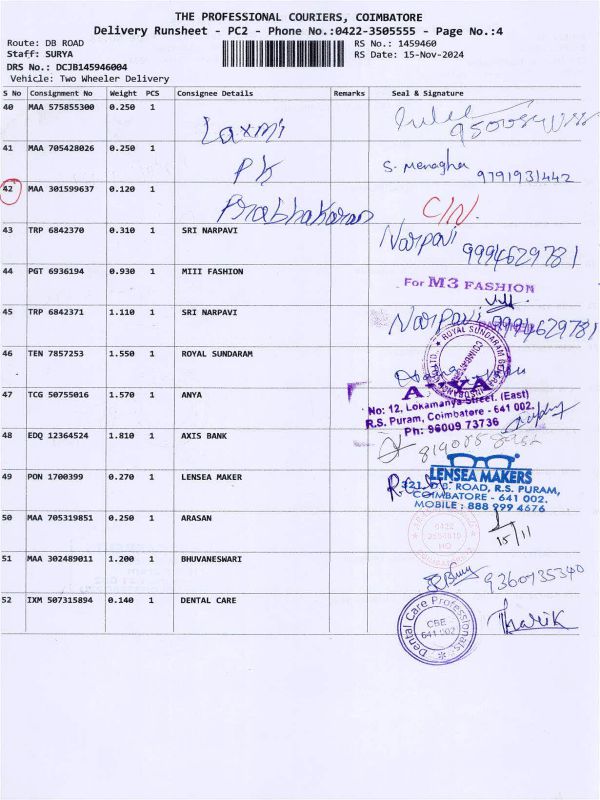 THE PROFESSIONAL COURIERS, COIMBATORE
Delivery Runsheet - PC2 - Phone No.:0422-3505555 - Page No.:4
Route: DB ROAD
RS No.: 1459460
Staff: SURYA
RS Date: 15-Nov-2024
DRS No.: DCJB145946004
Vehicle: Two Wheeler Delivery
S No Consignment No Weight PCS Consignee Details Remarks Seal & Signature
40 MAA 575855300 0.250 1
Laxmi
41 MAA 705428026 0.250 1
PK
S. Menagha
9791931442
42 MAA 301599637 0.120 1
Prabhakaran
C/N.
43 TRP 6842370 0.310 1 SRI NARPAVI
Narpavi
9994629781
44 PGT 6936194 0.930 1 MIII FASHION
For M3 FASHION
45 TRP 6842371 1.110 1 SRI NARPAVI
Narpavi 9994629781
46 TEN 7857253 1.550 1 ROYAL SUNDARAM
ROYAL SUNDARAM
COIMBATORE
47 TCG 50755016 1.570 1 ANYA
No: 12, Lokamanya Street. (East)
R.S. Puram, Coimbatore - 641 002.
Ph: 96009 73736
48 EDQ 12364524 1.810 1 AXIS BANK
49 PON 1700399 0.270 1 LENSEA MAKER
LENSEA MAKERS
ROAD, R.S. PURAM,
COIMBATORE - 641 002.
MOBILE : 888 999 4676
50 MAA 705319851 0.250 1 ARASAN
0422
HO
15/11
51 MAA 302489011 1.200 1 BHUVANESWARI
9360735340
52 IXM 507315894 0.140 1 DENTAL CARE
Dental Care Professionals
CBE
641 002
Tharik